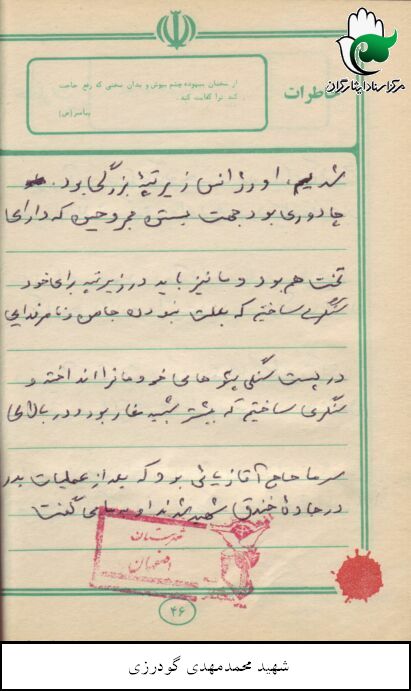 مرکز اسناد ایثارگران
خاطرات
از سخنان بیهوده چشم بپوش و بدان سخنی که رفع حاجت
کند ترا کفایت کند.
پیامبر(ص)
شدیم، اورژانس زیر تپهٔ بزرگی بود.
چادری بود جهت بستری مجروحین که دارای
تخت هم بود و ما نیز باید در زیر تپه برای خود
سنگری ساختیم که بعلت نبودن جا من و نامزدایی
در پست سنگی پتوهای خود مانرا انداخته و
سنگری ساختیم که بیشتر شبیه غار بود و در بالای
سر ما حاج آقا زیائی بود که بعد از عملیات بدر
در جادهٔ خندق شهید شدند او به ما می گفت
اصفهان
۴۶
شهید محمدمهدی گودرزی